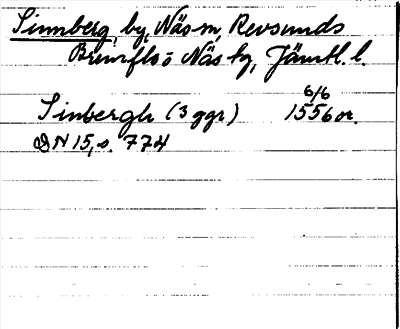 Sinnberg by, Näs sn, Revsunds
Brunflo o Näs tg, Jämtl. l.
6/6
Sinbergh (3 ggr) 1556 or.
DN 15, s. 774